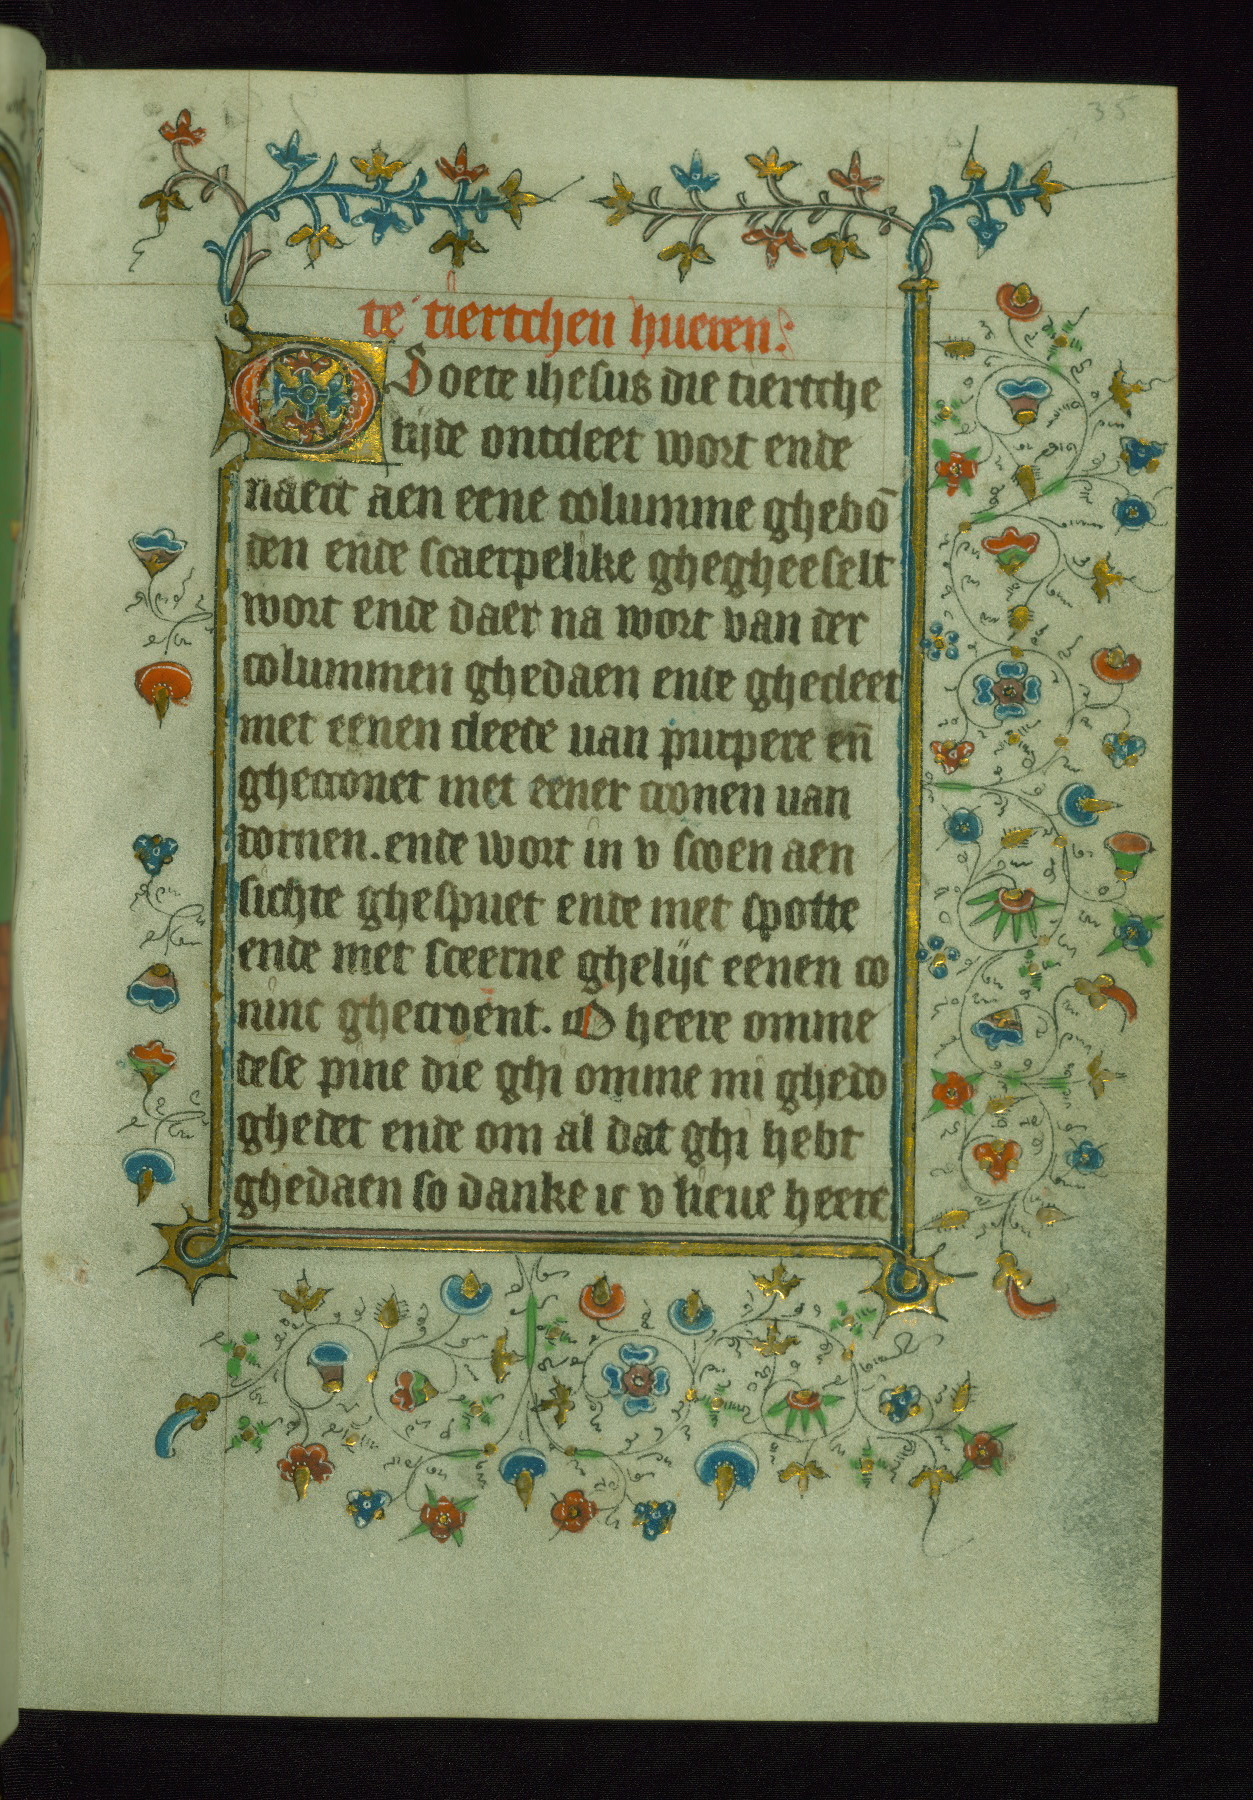 35
te tiertchen hueren.
O Soete ihesus die tiertche
tijde ontcleet wort ende
naect aen eene columme ghebō
den ende scaerpelike ghegheeselt
wort ende daer na wort van der
colummen ghedaen ende ghecleet
met eenen cleede uan purpere en̄
ghecronet met eener cronen uan
dornen. ende wort in v scoen aen
sichte ghespuet ende met spotte
ende met sceerne ghelijc eenen co
ninc ghecroent. O heere omme
dese pine die ghi omme mi ghedo
ghedet ende om al dat ghi hebt
ghedaen so danke ic v lieue heere